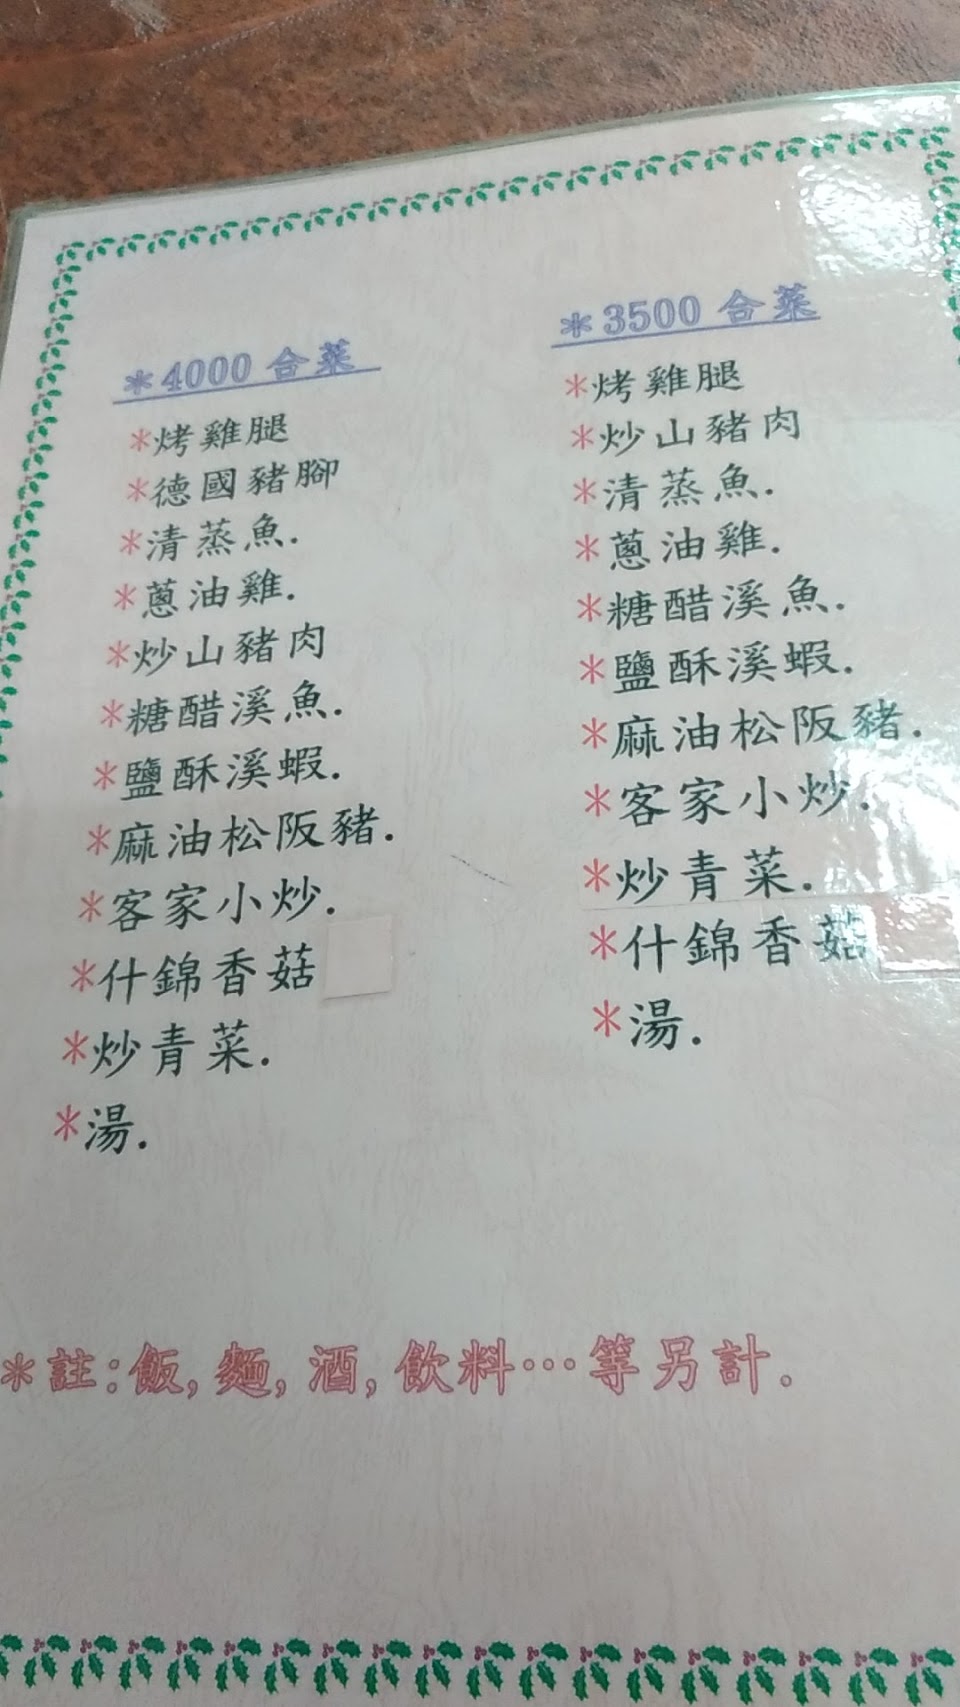 *4000 合菜
*烤雞腿
*德國豬腳
*清蒸魚.
*蔥油雞.
*炒山豬肉
*糖醋溪魚.
*鹽酥溪蝦.
*麻油松阪豬.
*客家小炒.
*什錦香菇
*炒青菜.
*湯.
*3500 合菜
*烤雞腿
*炒山豬肉
*清蒸魚.
*蔥油雞.
*糖醋溪魚.
*鹽酥溪蝦.
*麻油松阪豬.
*客家小炒.
*炒青菜.
*什錦香菇
*湯.
*註:飯,麵,酒,飲料…等另計.